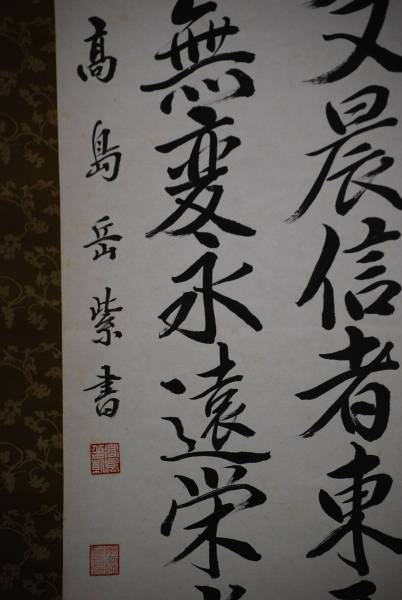 晨信者東
無変永遠栄
高島岳紫書